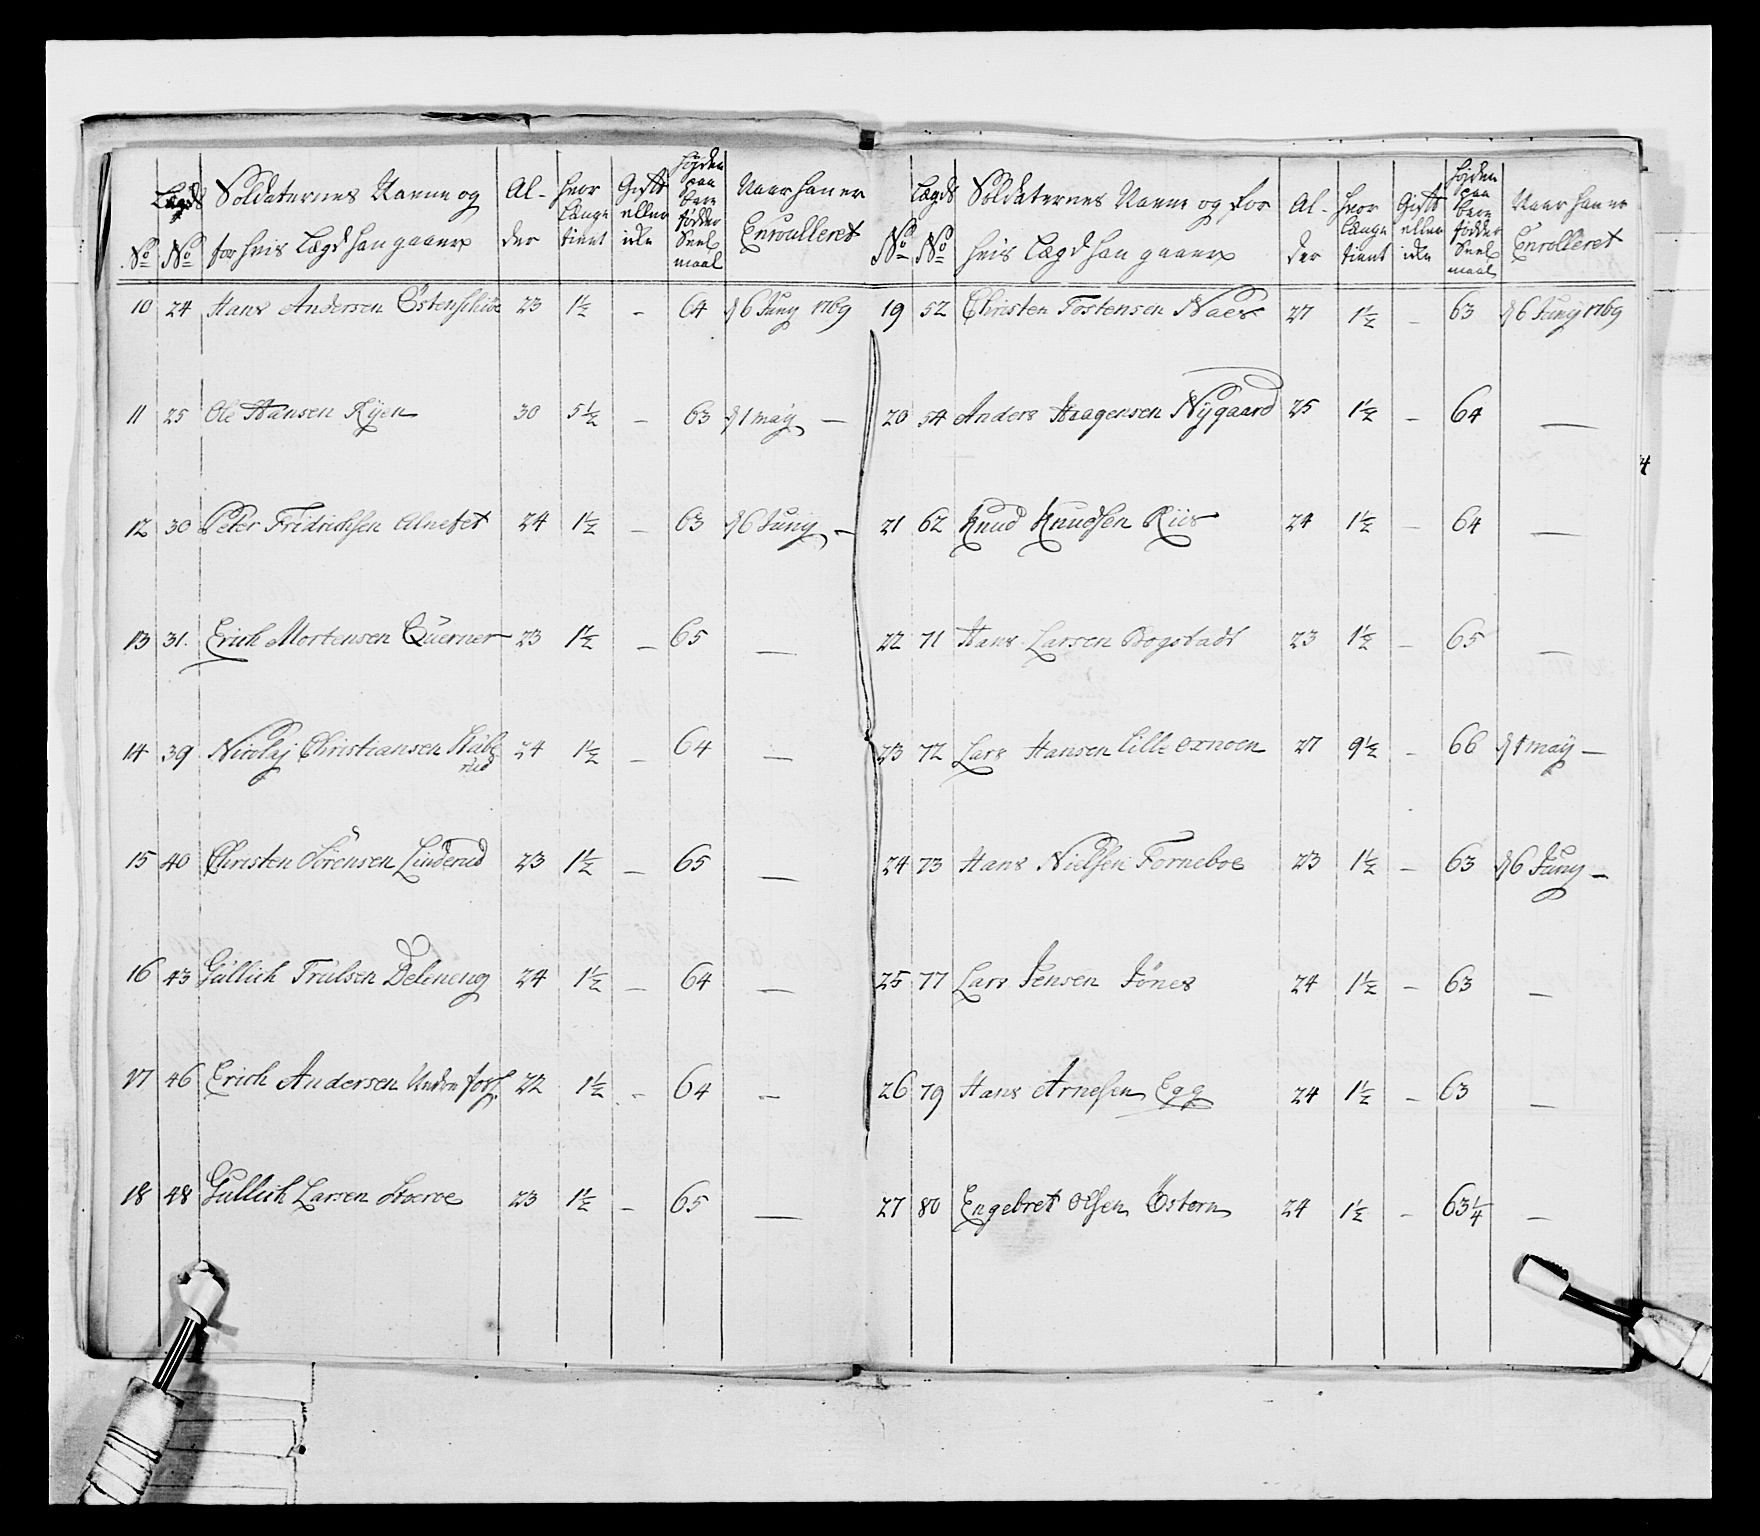 No | Lægds No | Soldaternes Navne og for hvis Lægd han gaaer | Alder | hvor Længe tient | Gift eller ide | Høyden paa bare fødder Seel maal | Naar han er Enroulleret
10 | 24 | Hans Andersen | 23 | 1½ | - | 64 | d 6 Juny 1769
11 | 25 | Ole Hansen Ryen | 30 | 5½ | - | 63 | d 1 may —
12 | 30 | Peter Fridrichsen Alnefet | 24 | 1½ | - | 63 | d 6 Juny —
13 | 31. | Erich Mortensen Querner | 23 | 1½ | - | 65 | —
14 | 39 | Nicolaj Christiansen Stubberud | 24 | 1½ | - | 64 | —
15 | 40 | Christen Sørensen Linderud | 23 | 1½ | - | 65 | —
16 | 43 | Gullich Trulsen Deleneng | 24 | 1½ | - | 64 | —
17 | 46 | Erich Andersen | 22 | 1½ | - | 64 | —
18 | 48 | Gullich Larsen | 23 | 1½ | - | 65 | —
No | Lægds No | Soldaternes Navne og for hvis Lægd han gaaer | Alder | hvor Længe tient | Gift eller ide | Høyden paa bare fødder Seel maal | Naar han er Enrolleret
19 | 52 | Christen Tostensen Naes | 27 | 1½ | - | 63 | d 6 Juny 1769
20 | 54 | Anders Haagensen Nygaard | 25 | 1½ | - | 64 | —
21 | 62 | Knud Knudsen Riis | 24 | 1½ | - | 64 | —
22 | 71 | Hans Larsen Bogstad | 23 | 1½ | - | 65 | —
23 | 72 | Lars Hansen Lille | 27 | 9½ | - | 66 | d 1 may —
24 | 73 | Hans Nielsen Forneboe | 23 | 1½ | - | 63 | d 6 Juny —
25 | 77 | Lars Jensen Jønes | 24 | 1½ | - | 63 | —
26 | 79 | Hans Arnesen Egg | 24 | 1½ | - | 63 | —
27 | 80 | Engebret Olsen Østern | 24 | 1½ | - | 63¼ | —
4